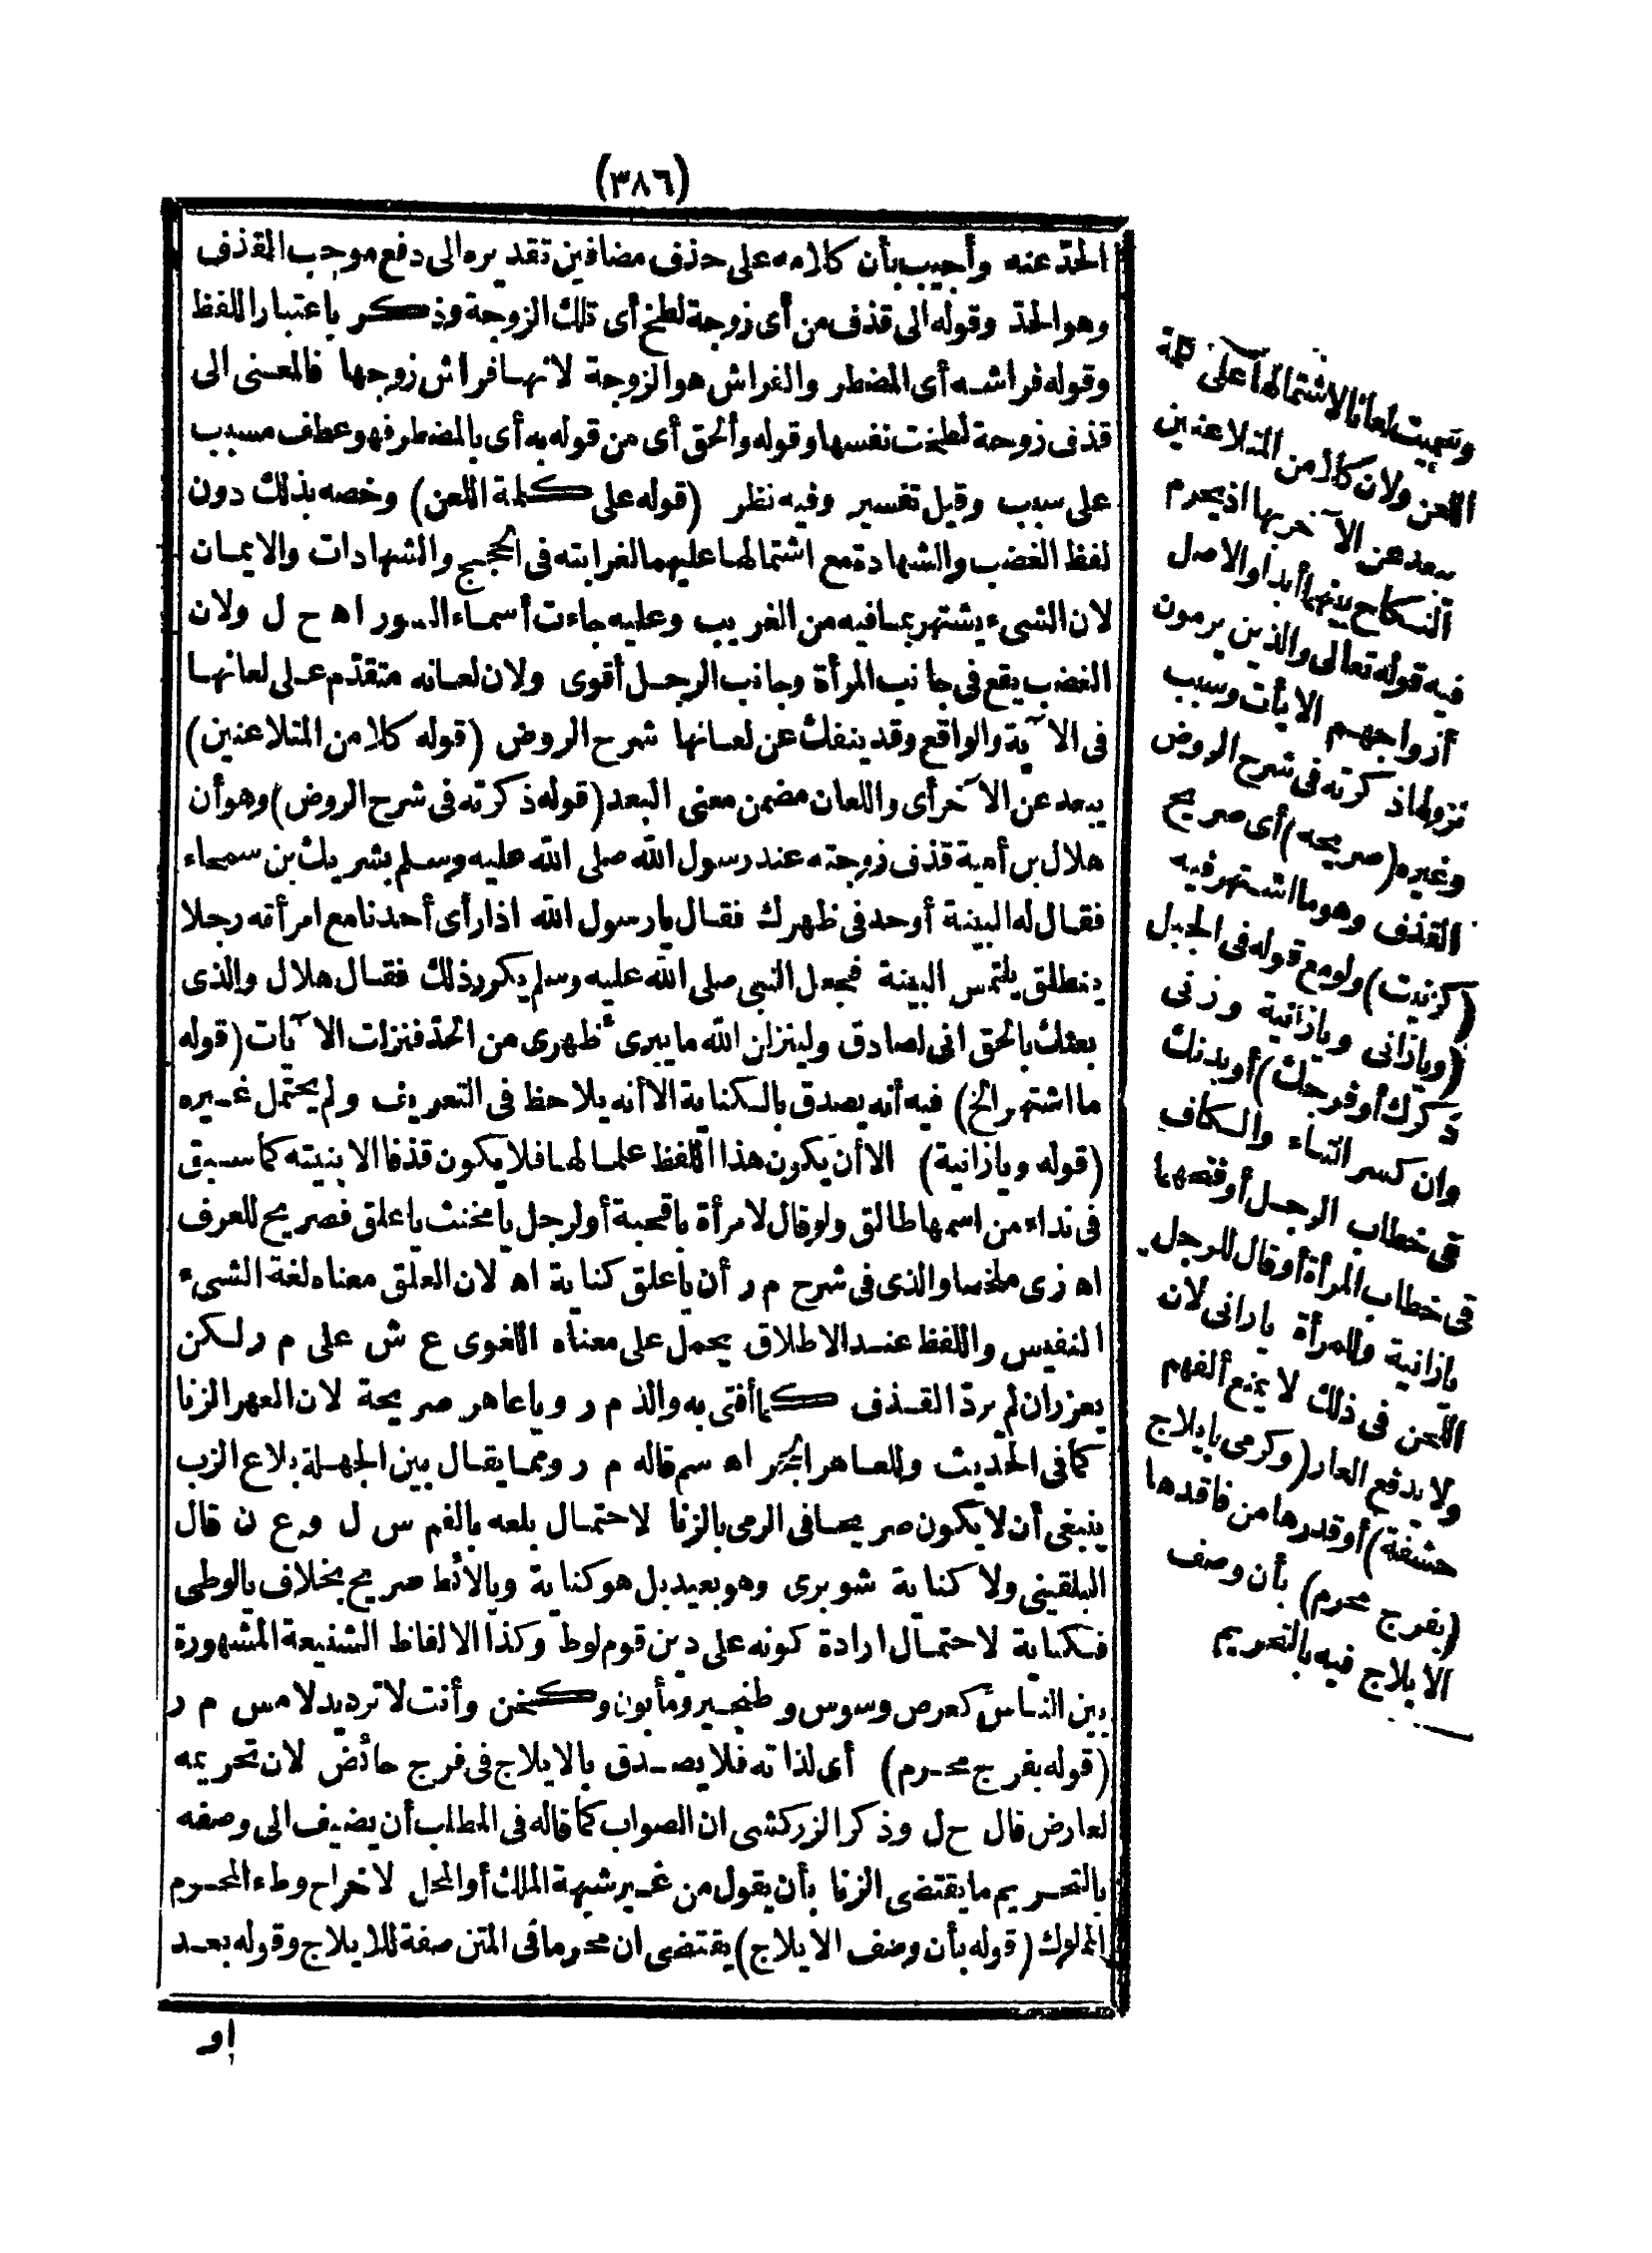 (٣٨٦)
الحدّ عنه وأجيب بأن كلامه على حذف مضافين تقديره الى دفع موجب القذف
وهو الحدّ وقوله الى قذف من أى زوجة لطخ أى تلك الزوجة وذكر باعتبار اللفظ
وقوله فراشه أى المضطر والفراش هو الزوجة لانها فراش زوجها فالمعنى الى
قذف زوجة لطخت نفسها وقوله وألحق أى من قوله به أى بالمضطر فهو عطف مسبب
على سبب وقيل تفسير وفيه نظر (قوله على كلمة اللعن) وخصه بذلك دون
لفظ الغضب والشهادة مع اشتمالها عليهما لغرابته فى الحجج والشهادات والايمان
لان الشىء يشتهر بما فيه من الغريب وعليه جاءت أسماء السور اه ح ل ولان
الغضب يقع فى جانب المرأة وجانب الرجل أقوى ولان لعانه متقدّم على لعانها
فى الآية والواقع وقد ينفك عن لعانها شرح الروض (قوله كلا من المتلاعنين)
يبعد عن الآخر أى واللعان مضمن معنى البعد (قوله ذكرته فى شرح الروض) وهو أن
هلال بن أمية قذف زوجته عند رسول الله صلى الله عليه وسلم بشريك بن سمحاء
فقال له البينة أو حد فى ظهرك فقال يا رسول الله اذا رأى أحدنا مع امرأته رجلا
ينطلق يلتمس البينة فجعل النبى صلى الله عليه وسلم يكرر ذلك فقال هلال والذى
بعثك بالحق انى لصادق ولينزلن الله ما يبرئ ظهرى من الحدّ فنزلت الآيات (قوله
ما اشتهر الخ) فيه أنه يصدق بالكناية الا أنه يلاحظ فى التعريف ولم يحتمل غيره
(قوله ويا زانية) الا أن يكون هذا اللفظ علما لها فلا يكون قذفا الا بنيته كما سبق
فى نداء من اسمها طالق ولو قال لامرأة يا قحبة أو لرجل يا مخنث يا علق فصريح للعرف
اه زى ملخصا والذى فى شرح م ر أن يا علق كناية اه لان العلق معناه لغة الشىء
النفيس واللفظ عند الاطلاق يحمل على معناه اللغوى ع ش على م ر لكن
يعزر ان لم يردّ القذف كما أفتى به والد م ر ويا عاهر صريحة لان العهر الزنا
كما فى الحديث وللعاهر الحجر اه سم قاله م ر ومما يقال بين الجهلة بلاع الزب
ينبغى أن لا يكون صريحا فى الرمى بالزنا لاحتمال بلعه بالفم س ل و ع ن قال
البلقينى ولا كناية شوبرى وهو بعيد بل هو كناية وبالائط صريح بخلاف يا لوطى
فكناية لاحتمال ارادة كونه على دين قوم لوط وكذا الالفاظ الشنيعة المشهورة
بين الناس كعرص وسوس وطنجير ومأبون وكخن وأنت لا ترديد لامس م ر
(قوله بفرج محرم) أى لذاته فلا يصدق بالايلاج فى فرج حائض لان تحريمه
لعارض قال ح ل وذكر الزركشى ان الصواب كما قاله فى المطلب أن يضيف الى وصفه
بالتحريم ما يقتضى الزنا بأن يقول من غير شبهة الملك أو المحل لاخراح وطء المحرم
المملوك (قوله بأن وصف الايلاج) يقتضى ان محرما فى المتن صفة للايلاج وقوله بعد
او
وسميت لعانا لاشتمالها على كلمة
اللعن ولان كلا من المتلاعنين
يبعد عن الآخر بها اذ يحرم
النكاح بينهما أبدا والاصل
فيه قوله تعالى والذين يرمون
أزواجهم الآيات وسبب
نزولها ذكرته فى شرح الروض
وغيره (صريحه) أى صريح
القذف وهو ما اشتهر فيه
(كزنيت) ولو مع قوله فى الجبل
(ويا زانى ويا زانية وزنى
ذكرك أو فرجك) أو بدنك
وان كسر التاء والكاف
فى خطاب الرجل أو فتحهما
فى خطاب المرأة أو قال للرجل
يا زانية وللمرأة يا زانى لان
اللحن فى ذلك لا يمنع الفهم
ولا يدفع العار (وكرمى بايلاج
حشفة) أو قدرها من فاقدها
(بفرج محرم) بأن وصف
الايلاج فيه بالتحريم